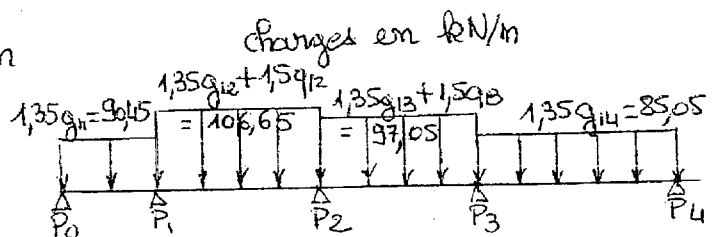 n
charges en kN/m
1,35g₁₁=90,45
1,35gᵢ₂+1,5q₁₂
= 106,65
1,35gᵢ₃+1,5qᵢ₃
= 97,05
1,35gᵢ₄=85,05
P₀ P₁ P₂ P₃ P₄